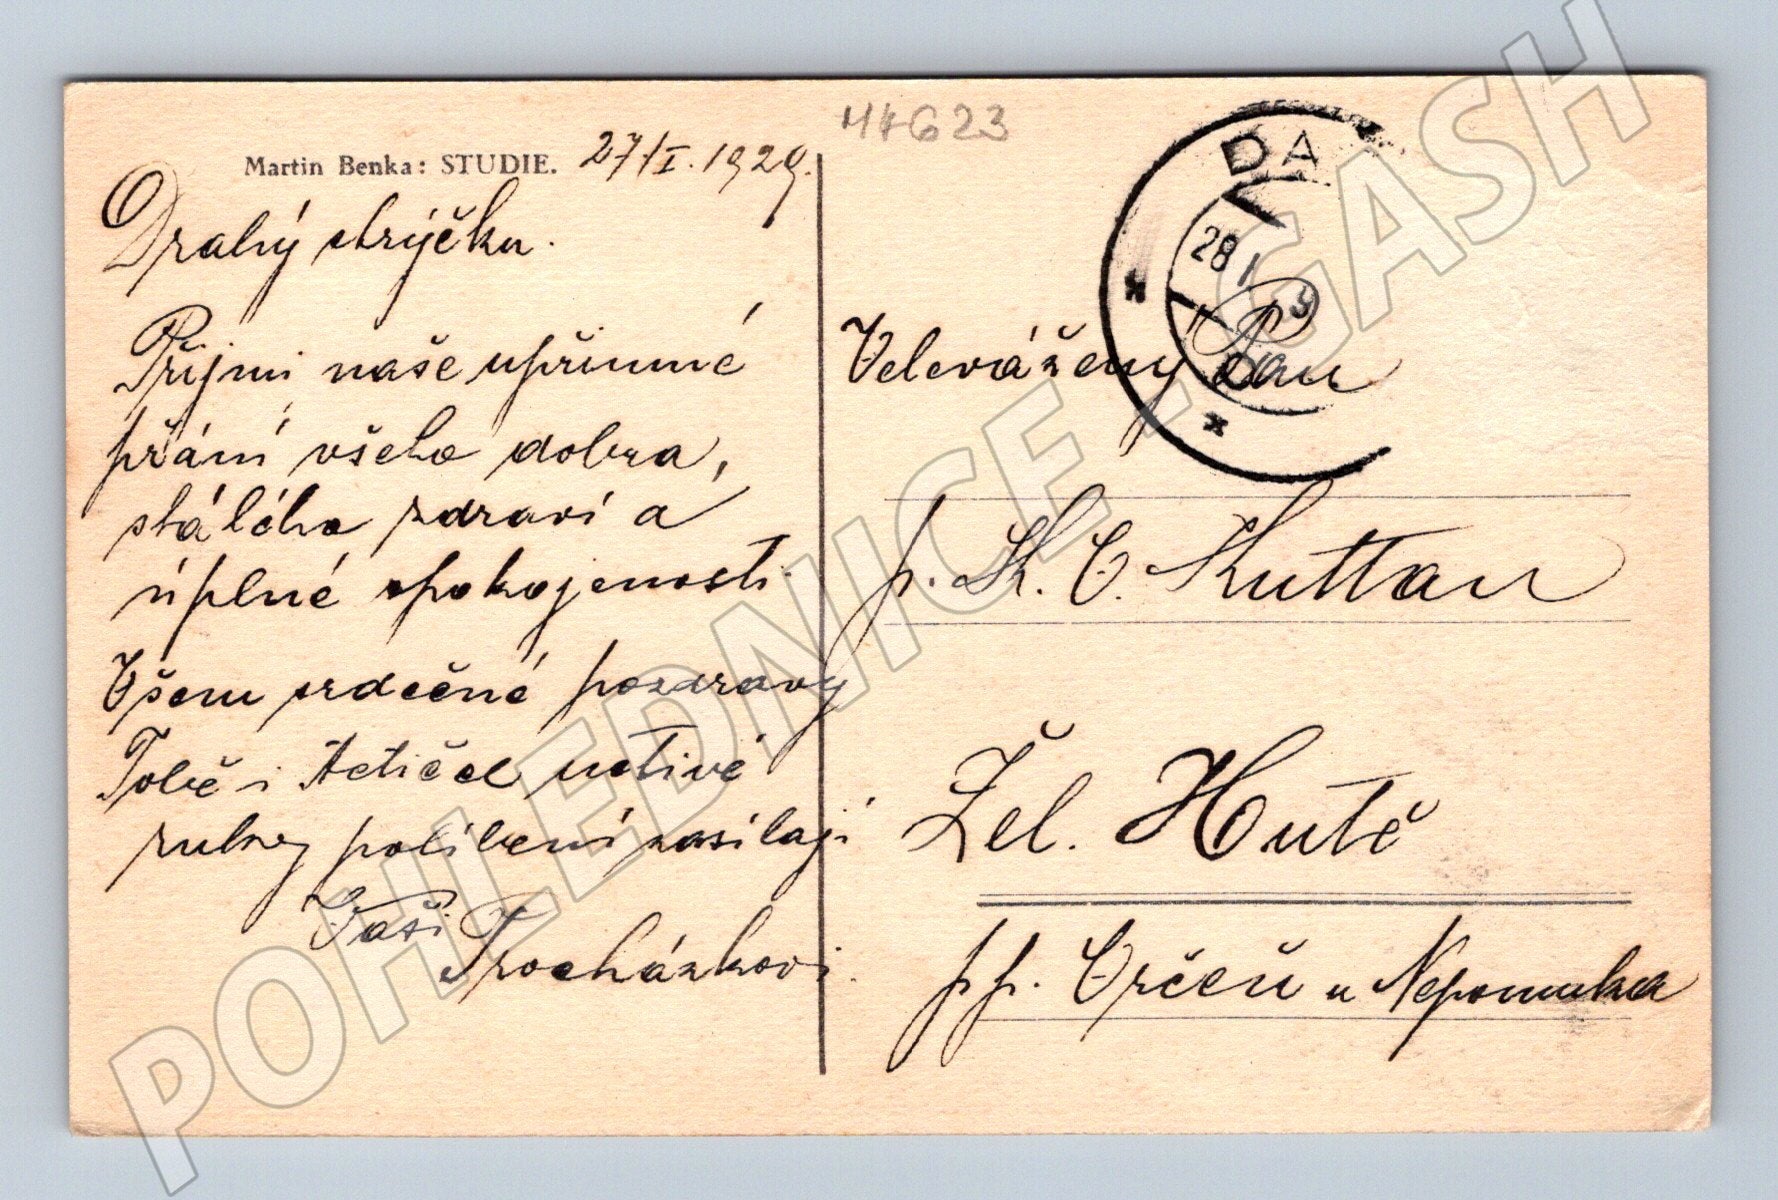 44623
Martin Benka: STUDIE. 27/I. 1929.
Drahý strýčku.
Přijmi naše upřimné
přání všeho dobra,
stálého zdraví a
úplné spokojenosti.
Všem srdečné pozdravy
Tobě i tetičce uctivé
ruky políbení zasílají
Vaši Procházkovi.
DA
28 I 9
Velevážený Pan
p. K. V. Kuttan
Žel. Hutě
pp. Vrčeň u Nepomuka
POHLEDNICE - GASH